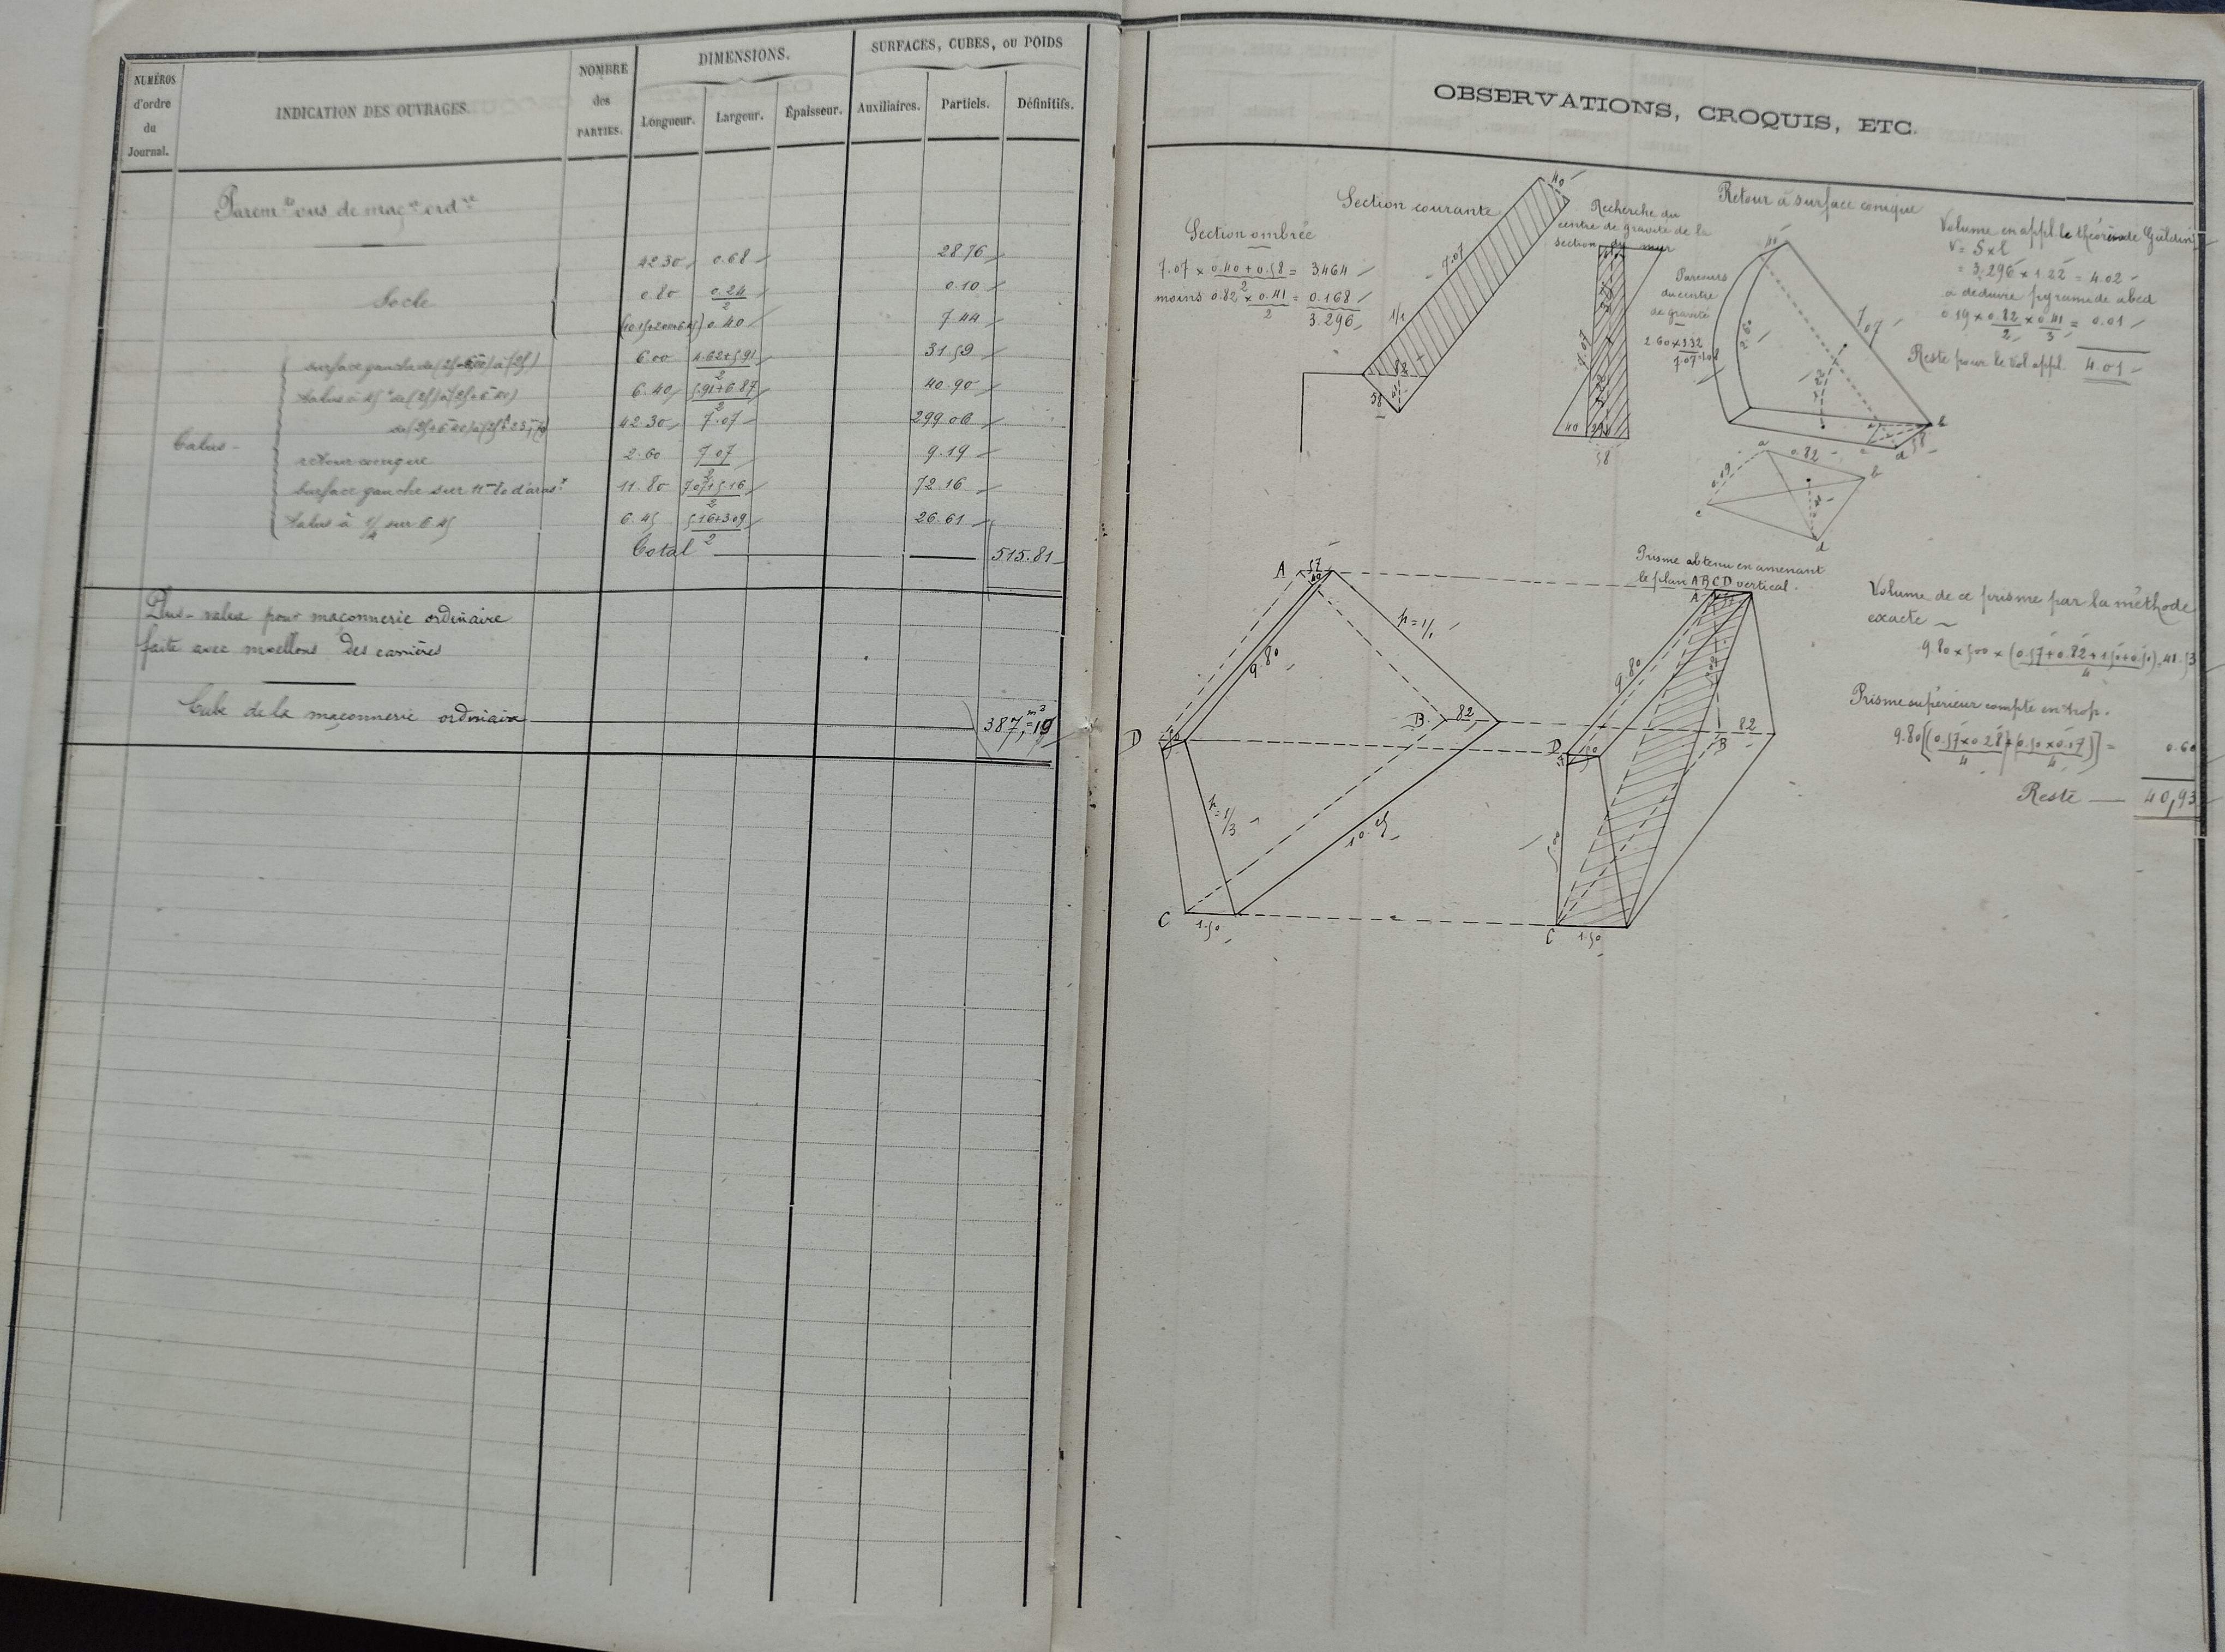 NUMÉROS
d'ordre
du
Journal.
INDICATION DES OUVRAGES.
NOMBRE
des
PARTIES.
DIMENSIONS.
Longueur. Largeur. Épaisseur.
SURFACES, CUBES, ou POIDS
Auxiliaires. Partiels. Définitifs.
Parem.ts vus de maç.ie ord.re
42.30 0.68 28.76
Socle 0.80 0.24/2 0.10
0.40 7.44
surface gauche de 6.00 (4.62+5.91)/2 31.59
talus à 45° de 6.40 (5.91+6.87)/2 40.90
42.30 7.07 299.06
Talus
retour conique 2.60 7.07/2 9.19
surface gauche sur 11m80 d'aras.t 11.80 (7.07+5.16)/2 72.16
talus à 1/4 sur 6.45 6.45 (5.16+3.09)/2 26.61
Total 515.81
Plus-value pour maçonnerie ordinaire
faite avec moellons des carrières
Cube de la maçonnerie ordinaire 387,m3=19
OBSERVATIONS, CROQUIS, ETC.
Section courante
Section ombrée
7.07 × (0.40+0.58)/2 = 3.464
moins 0.82 × 0.41/2 = 0.168
3.296
40
7.07
1/1
82
41
58
Recherche du
centre de gravité de la
section du mur
7.07
40
58
Retour à surface conique
Parcours
du centre
de gravité
2.60×3.32
7.07
40
2.60
7.07
1.22
58
b
c
d
a
0.82
b
0.19
c
d
Volume en appl. le théorème de Guldin
V = S×l
= 3.296 × 1.22 = 4.02
à déduire pyramide abcd
0.19 × 0.82/2 × 0.41/3 = 0.01
Reste pour le vol appl. 4.01
Prisme obtenu en amenant
le plan ABCD vertical.
A 57
40
p=1/1
9.80
B 82
D
p=1/3
10.25
C 1.50
A
9.80
D
B 82
C 1.50
Volume de ce prisme par la méthode
exacte
9.80 × 5.00 × (0.57+0.82+1.50+0.50)/4 = 41.53
Prisme supérieur compté en trop.
9.80[(0.57×0.28)/4+(0.50×0.17)/4] = 0.60
Reste — 40,93